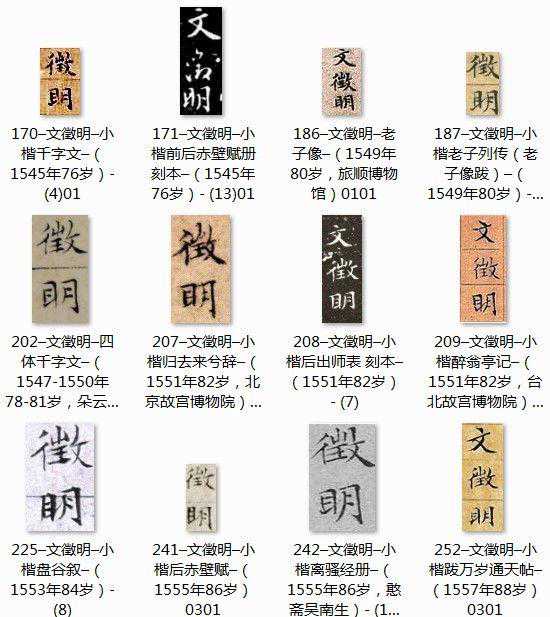 徵明
170–文徵明–小
楷千字文–（
1545年76岁）-
(4)01
文徵明
171–文徵明–小
楷前后赤壁赋册
刻本–（1545年
76岁）- (13)01
文徵明
186–文徵明–老
子像–（1549年
80岁，旅顺博物
馆）0101
徵明
187–文徵明–小
楷老子列传（老
子像跋）–（
1549年80岁）-...
徵明
202–文徵明–四
体千字文–（
1547-1550年
78-81岁，朵云...
徵明
207–文徵明–小
楷归去来兮辞–（
1551年82岁，北
京故宫博物院）...
文徵明
208–文徵明–小
楷后出师表 刻本–
（1551年82岁）
- (7)
文徵明
209–文徵明–小
楷醉翁亭记–（
1551年82岁，台
北故宫博物院）...
徵明
225–文徵明–小
楷盘谷叙–（
1553年84岁）-
(8)
徵明
241–文徵明–小
楷后赤壁赋–（
1555年86岁）
0301
徵明
242–文徵明–小
楷离骚经册–（
1555年86岁，憨
斋吴南生）- (1...
文徵明
252–文徵明–小
楷跋万岁通天帖–
（1557年88岁）
0301